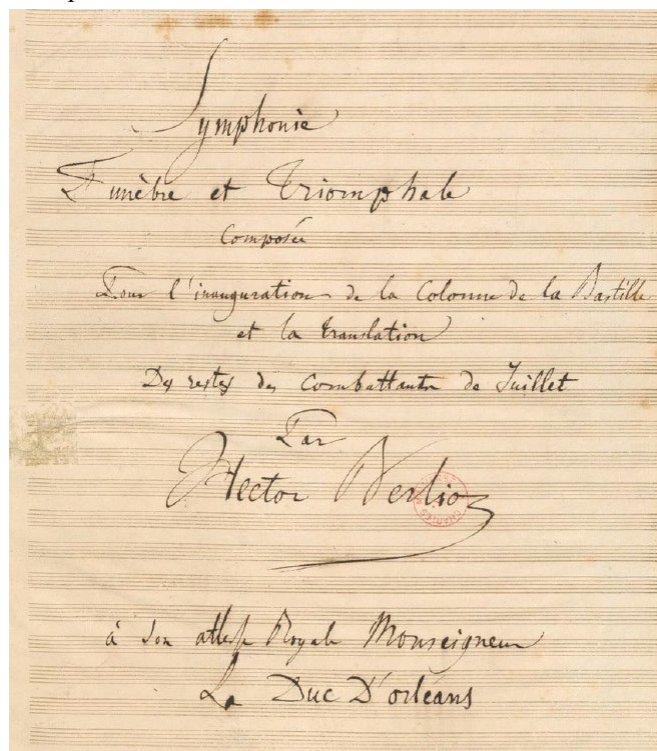 Symphonie
Funèbre et Triomphale
Composée
Pour l'inauguration de la Colonne de la Bastille
et la translation
Des restes des Combattants de Juillet
Par
Hector Berlioz
à Son altesse Royale Monseigneur
Le Duc D'orléans